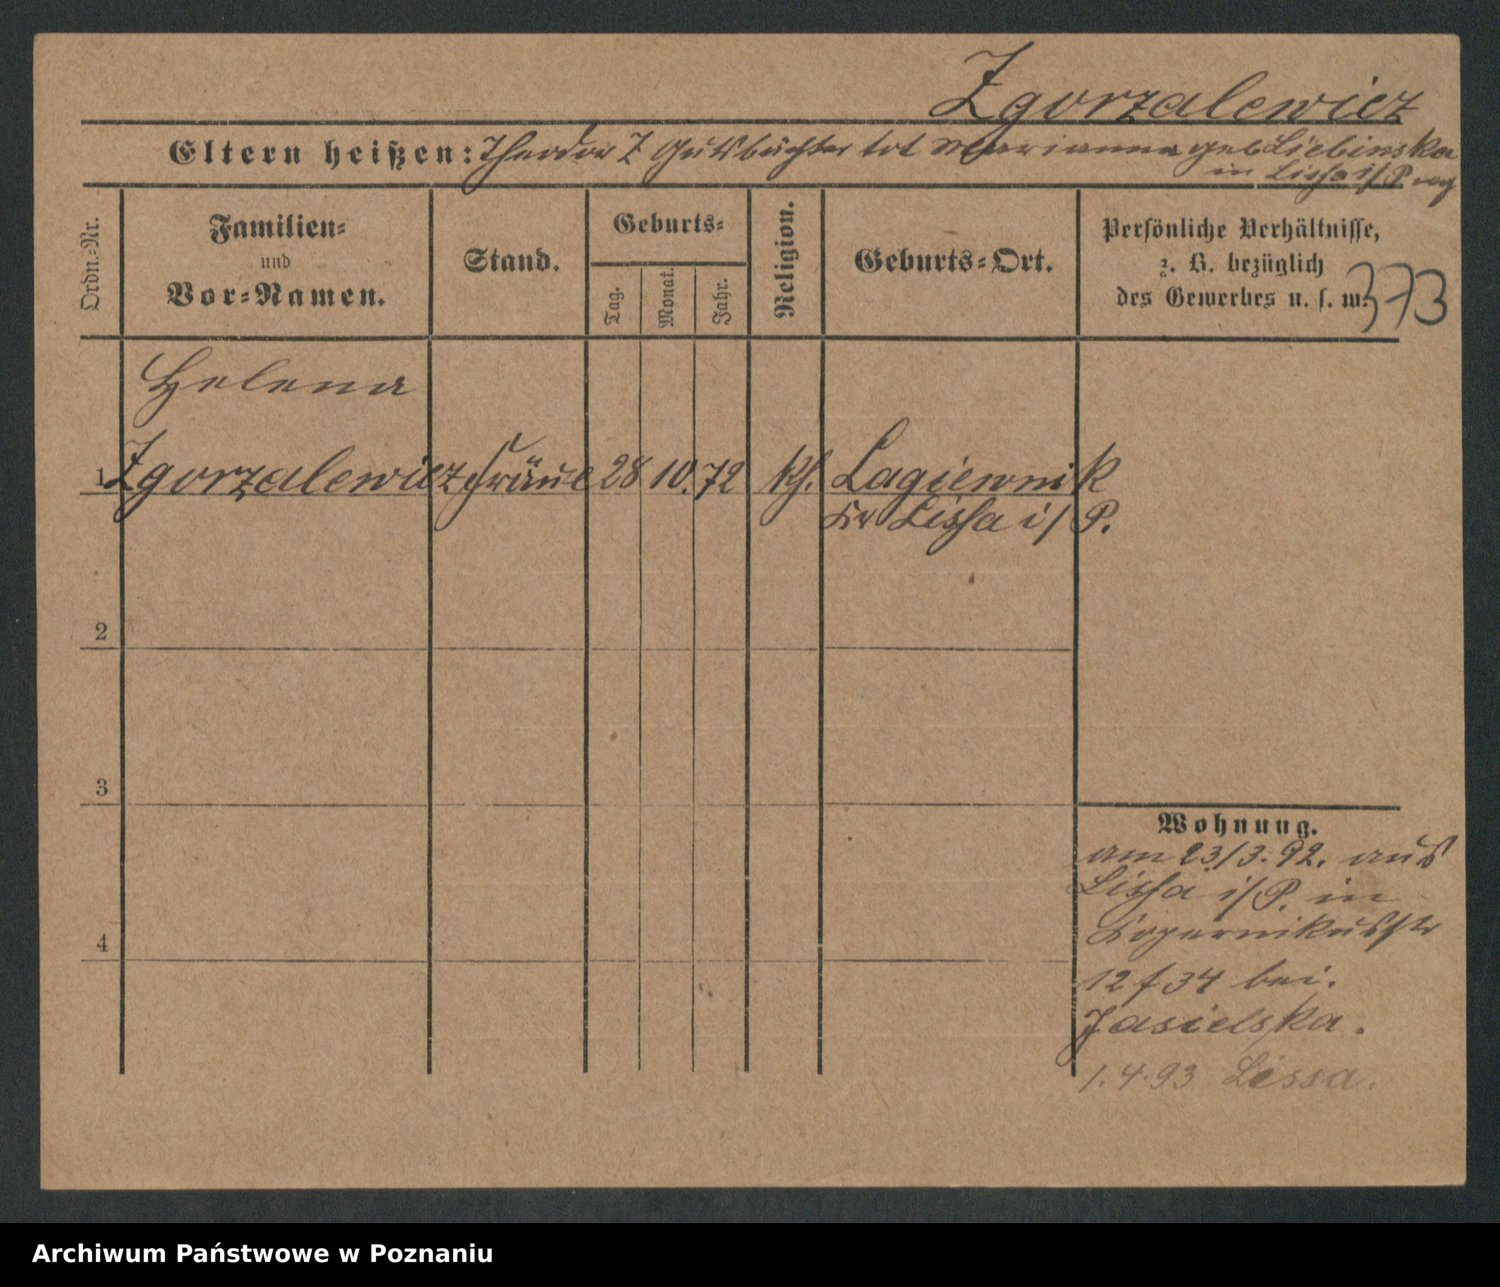 Zgorzalewicz
Eltern heißen: Theodor Z Gutsbächter tot Marianna geb Liebinska
in Lissa i/P
Ordn.-Nr.
Familien-
und
Vor-Namen.
Stand.
Geburts-
Tag.
Monat.
Jahr.
Religion.
Geburts-Ort.
Persönliche Verhältnisse,
z. B. bezüglich
des Gewerbes u. s. w.
373
Helena
1 Zgorzalewicz Fräul 28 10. 72 kth. Lagiewnik
Kr Lissa i/P.
2
3
4
Wohnung.
am 23/3. 92. aus
Lissa i/P. in
Kopernikusstr
12 f 34 bei.
Jasielska.
1.4.93 Lissa.
Archiwum Państwowe w Poznaniu